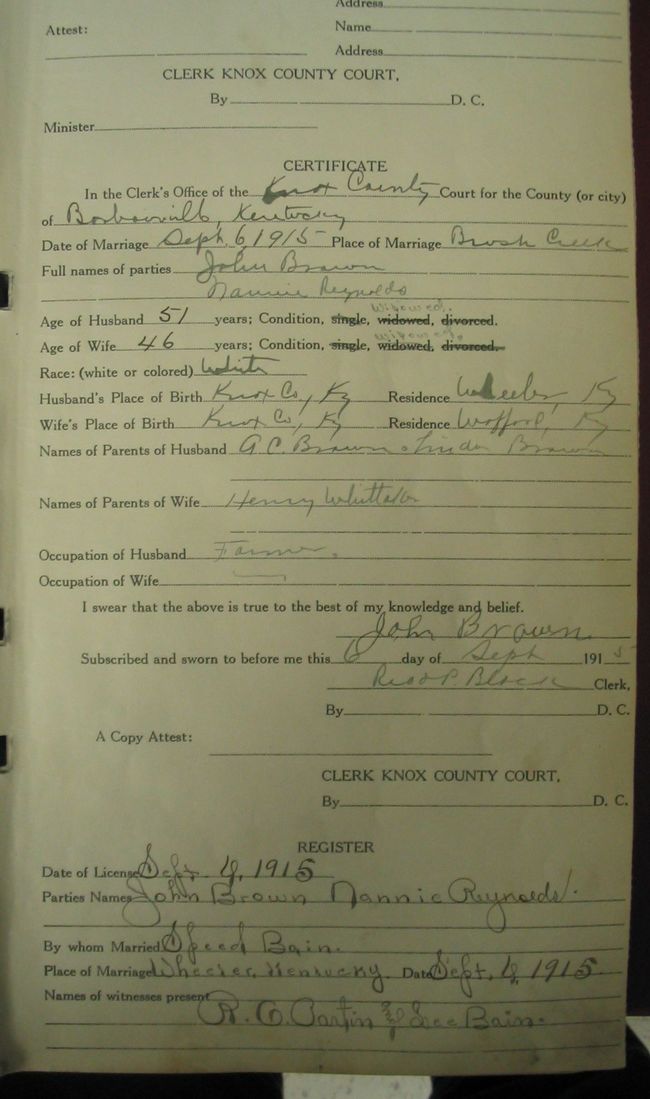 Address
Attest:
Name
Address
CLERK KNOX COUNTY COURT,
By D. C.
Minister
CERTIFICATE
In the Clerk's Office of the Knox County Court for the County (or city)
of Kentucky
Date of Marriage Sept. 6, 1915 Place of Marriage Brush Creek
Full names of parties John Brown
Nannie Reynolds
widowed.
Age of Husband 51 years; Condition, single, widowed, divorced.
widowed.
Age of Wife 46 years; Condition, single, widowed, divorced.
Race: (white or colored) White
Husband's Place of Birth Knox Co, Ky Residence Wheeler, Ky
Wife's Place of Birth Knox Co, Ky Residence Wofford, Ky
Names of Parents of Husband G. C. Brown Brown
Names of Parents of Wife Henry Whittaker
Occupation of Husband Farmer.
Occupation of Wife
I swear that the above is true to the best of my knowledge and belief.
John Brown
Subscribed and sworn to before me this 6 day of Sept 1915
Read P. Black Clerk,
By D. C.
A Copy Attest:
CLERK KNOX COUNTY COURT,
By D. C.
REGISTER
Date of License Sept. 1915
Parties Names John Brown Nannie Reynolds
By whom Married Speed Bain.
Place of Marriage Wheeler, Kentucky. Date Sept. 1915
Names of witnesses present
R. C. Bain.